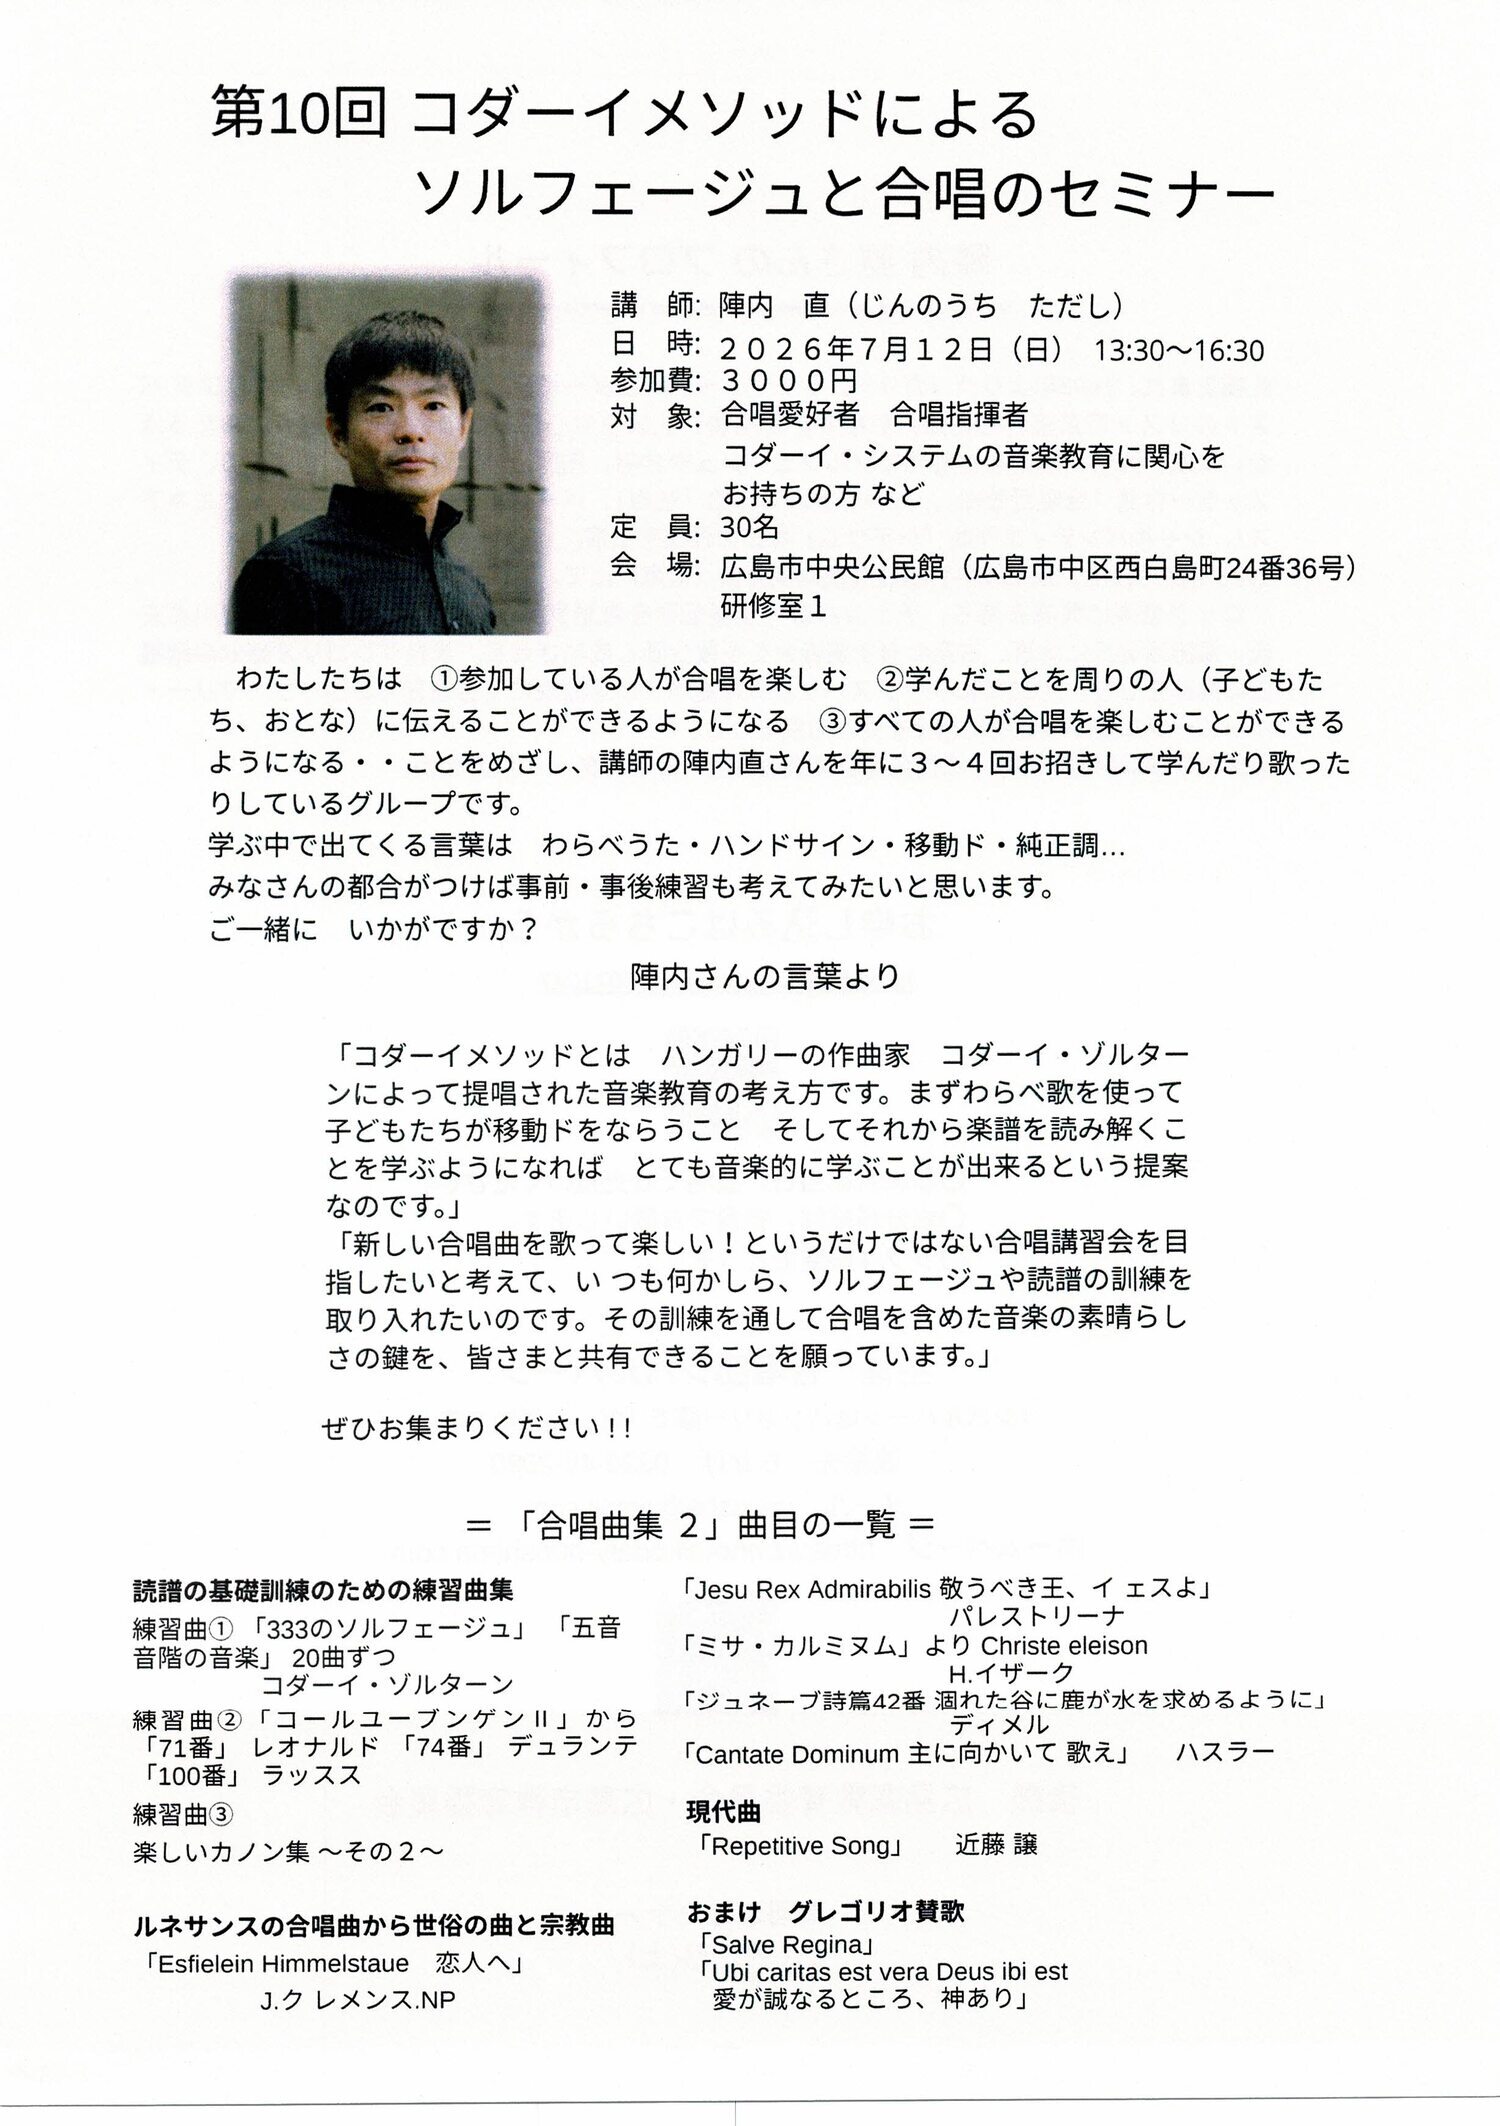 第10回 コダーイメソッドによる
ソルフェージュと合唱のセミナー
講　師: 陣内　直（じんのうち　ただし）
日　時: ２０２６年７月１２日（日） 13:30～16:30
参加費: ３０００円
対　象: 合唱愛好者　合唱指揮者
コダーイ・システムの音楽教育に関心を
お持ちの方 など
定　員: 30名
会　場: 広島市中央公民館（広島市中区西白島町24番36号）
研修室１
わたしたちは　①参加している人が合唱を楽しむ　②学んだことを周りの人（子どもた
ち、おとな）に伝えることができるようになる　③すべての人が合唱を楽しむことができる
ようになる・・ことをめざし、講師の陣内直さんを年に３～４回お招きして学んだり歌った
りしているグループです。
学ぶ中で出てくる言葉は　わらべうた・ハンドサイン・移動ド・純正調…
みなさんの都合がつけば事前・事後練習も考えてみたいと思います。
ご一緒に　いかがですか？
陣内さんの言葉より
「コダーイメソッドとは　ハンガリーの作曲家　コダーイ・ゾルター
ンによって提唱された音楽教育の考え方です。まずわらべ歌を使って
子どもたちが移動ドをならうこと　そしてそれから楽譜を読み解くこ
とを学ぶようになれば　とても音楽的に学ぶことが出来るという提案
なのです。」
「新しい合唱曲を歌って楽しい！というだけではない合唱講習会を目
指したいと考えて、い つも何かしら、ソルフェージュや読譜の訓練を
取り入れたいのです。その訓練を通して合唱を含めた音楽の素晴らし
さの鍵を、皆さまと共有できることを願っています。」
ぜひお集まりください！！
＝ 「合唱曲集 ２」曲目の一覧 ＝
読譜の基礎訓練のための練習曲集
練習曲① 「333のソルフェージュ」 「五音
音階の音楽」 20曲ずつ
コダーイ・ゾルターン
練習曲②「コールユーブンゲンⅡ」から
「71番」 レオナルド 「74番」 デュランテ
「100番」 ラッスス
練習曲③
楽しいカノン集 ～その２～
ルネサンスの合唱曲から世俗の曲と宗教曲
「Esfielein Himmelstaue　恋人へ」
J.ク レメンス.NP
「Jesu Rex Admirabilis 敬うべき王、イ ェスよ」
パレストリーナ
「ミサ・カルミヌム」より Christe eleison
H.イザーク
「ジュネーブ詩篇42番 涸れた谷に鹿が水を求めるように」
ディメル
「Cantate Dominum 主に向かいて 歌え」　ハスラー
現代曲
「Repetitive Song」　近藤 譲
おまけ　グレゴリオ賛歌
「Salve Regina」
「Ubi caritas est vera Deus ibi est
愛が誠なるところ、神あり」